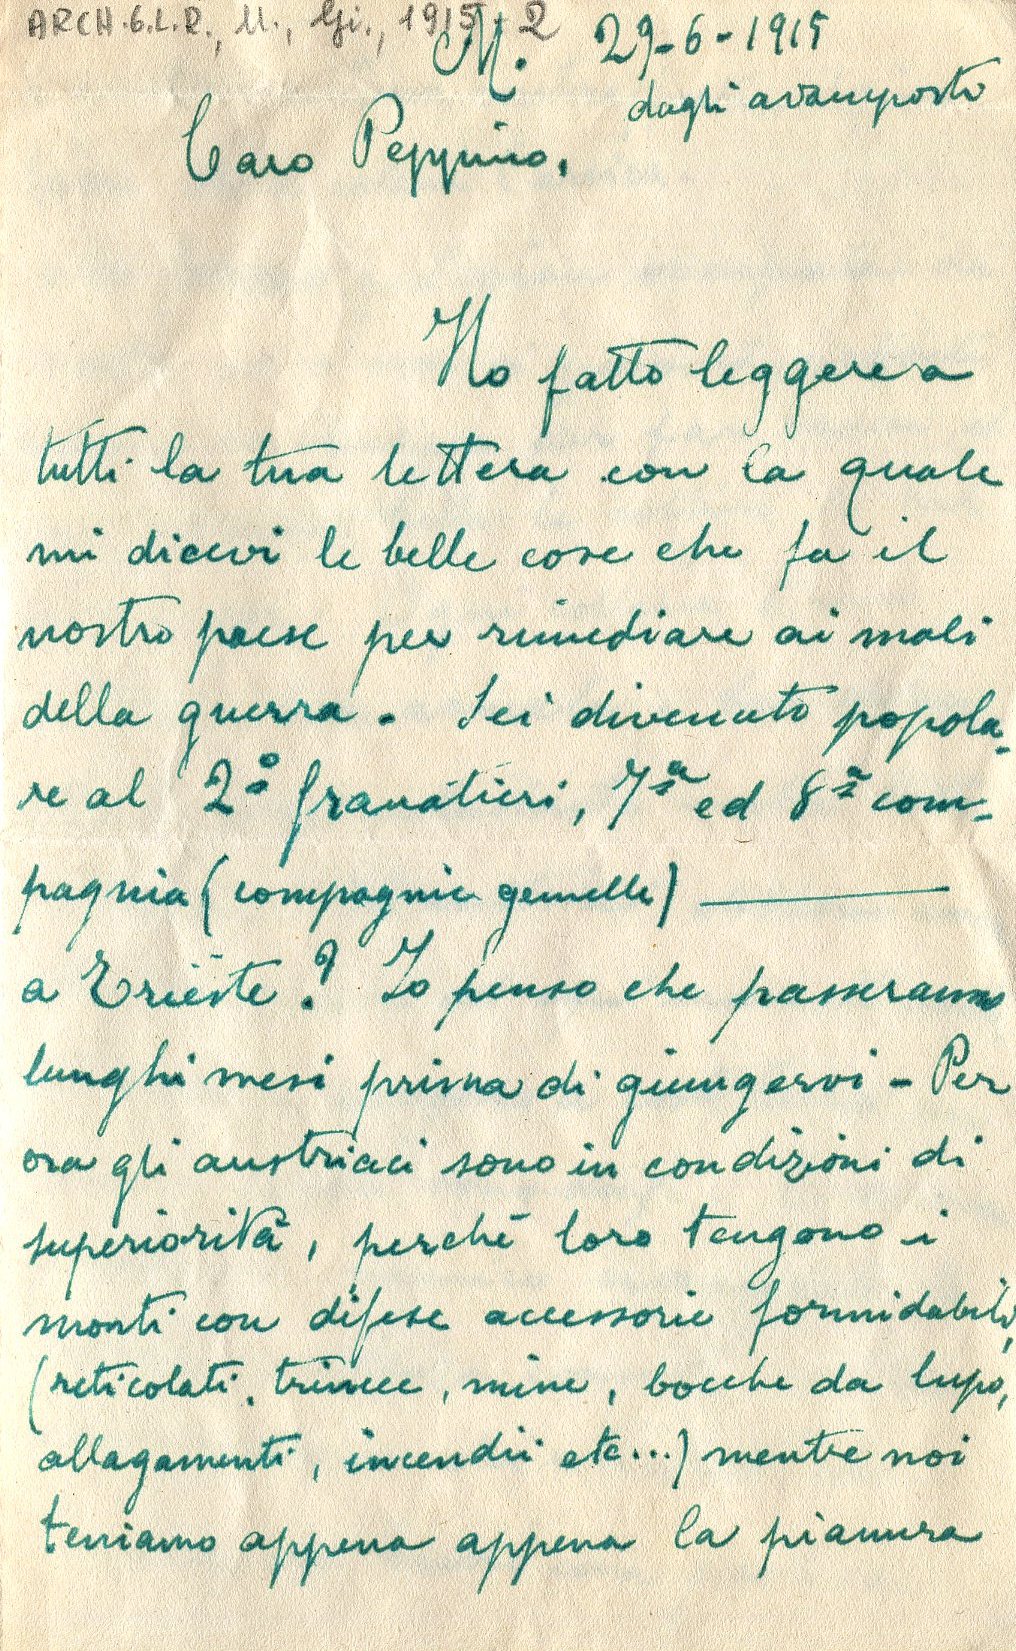 ARCH. G.L.R., U., Gi., 1915, 2
M. 29-6-1915
dagli avamposti
Caro Peppino,
Ho fatto leggere a
tutti la tua lettera con la quale
mi dicevi le belle cose che fa il
nostro paese per rimediare ai mali
della guerra. Sei divenuto popola-
re al 2º granatieri, 7ª ed 8ª com-
pagnia (compagnie gemelle) ———
a Trieste? Io penso che passeranno
lunghi mesi prima di giungervi - Per
ora gli austriaci sono in condizioni di
superiorità, perché loro tengono i
monti con difese accessorie formidabili,
(reticolati, trincee, mine, bocche da lupo,
allagamenti, incendii etc...) mentre noi
teniamo appena appena la pianura